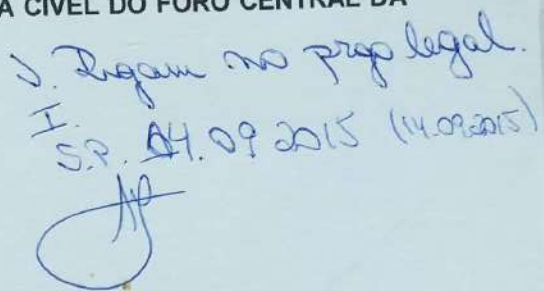 A CÍVEL DO FORO CENTRAL DA
J. Digam no prazo legal.
I.
S.P. 14.09.2015 (14.09.2015)